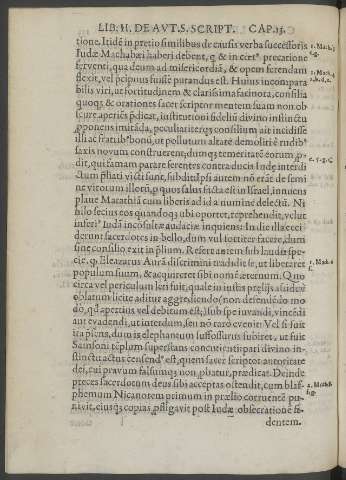 LIB. II. DE AVT. S. SCRIPT. CAP. 13.
tione. Itidē in pretio similibus de causis verba successoris
Iudæ Machabæi haberi debent, q & in certᵒ. precatione
ferventi, qua deum ad misericordiā, & opem ferendam
flexit, vel pcipuus fuisse purandus est. Huius incompara
bilis viri, ut fortitudinem & clarissima facinora, consilia
quoqȝ & orationes sacer scriptor mentem suam non ob
scure aperiēs pdicat, institutioni fideliū divino instinctu
pponens imitāda, peculiariterqȝ consilium ait incidisse
illi ac fratribᵒ bonū, ut pollutum altare demoliri & rudibᵒ
saxis novum construerent, dumqȝ temeritatē eorum
dit, qui famam parare ferentes contra ducis Iudæ interdi
ctum pliati victi sunt, subditIpsi autem nō erāt de semi
ne virorum illorū, p quos salus facta est in Israel, innuens
plane Matathiā cum liberis ad id a numine delectū. Ni
hilo secius eos quandoqȝ ubi oportet, reprehendit, velut
inferiᵒ Iudā inconsultæ audaciæ inquiens: In die illa ceci
derunt sacerdotes in bello, dum vul fortiter facere, dum
sine consilio exit in plium. Refert autem sub laudis spe-
cie, q Eleazarus Aurā discrimini tradidit se, ut liberaret
populum suam, & acquireret sibi nomē æternum. Quo
circa vel periculum leti fuit, quale in iustis prelijs assidue
oblatum licite aditur aggrediendo (non defendēdo mo
dō, qd apertius vel debitum est,) sub spe iuvandi, vincēdi
aut evadendi, ut interdum, seu nō raro evenit: Vel si fuit
ita pcius, dum is elephantum suffossurus subiret, ut fuit
Samsoni tēplum superstans concutienti, pati divino in-
stinctu actus censendᵒ est, quem sacer scriptor autoritate
dei, cui pravum falsumqȝ non pbatur, prædicat. Deinde
preces sacerdotum deus sibi acceptas ostendit, cum blas
phemum Nicanorem primum in prælio corruentē pu-
nivit, eiusqȝ copias pfligavit post Iudæ obsecratione se-
dentem.